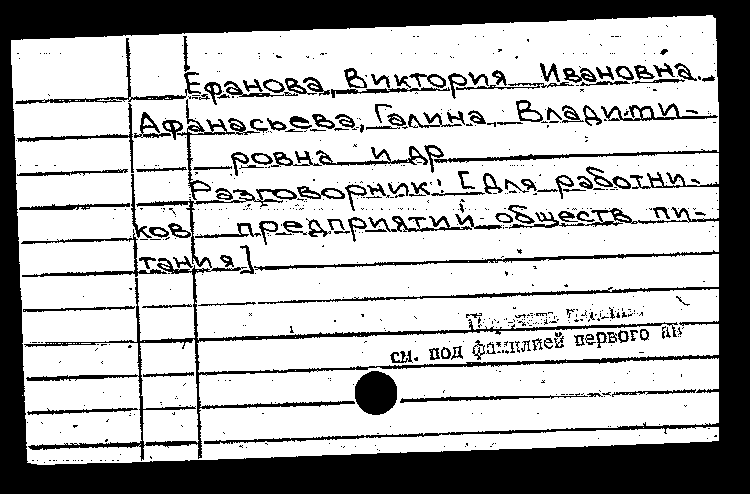 Ефанова, Виктория Ивановна
Афанасьева, Галина Владими-
ровна и др
Разговорник: [Для работни-
ков предприятий обществ пи-
тания]
см. под фамилией первого